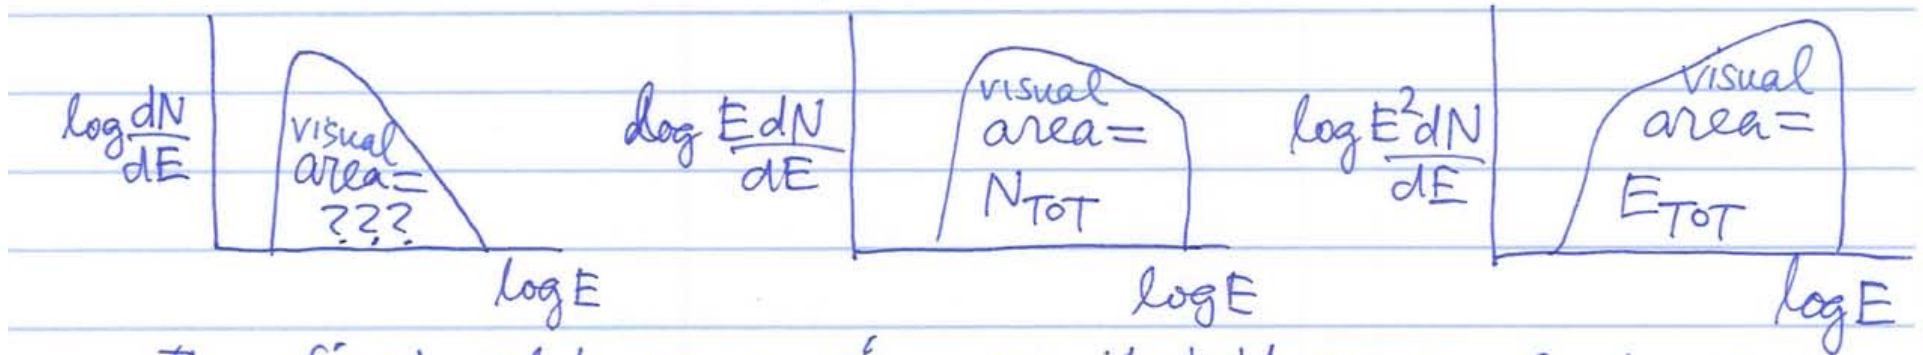 log dN/dE
visual
area=
???
log E
log EdN/dE
visual
area=
N_TOT
log E
log E²dN/dE
visual
area=
E_TOT
log E